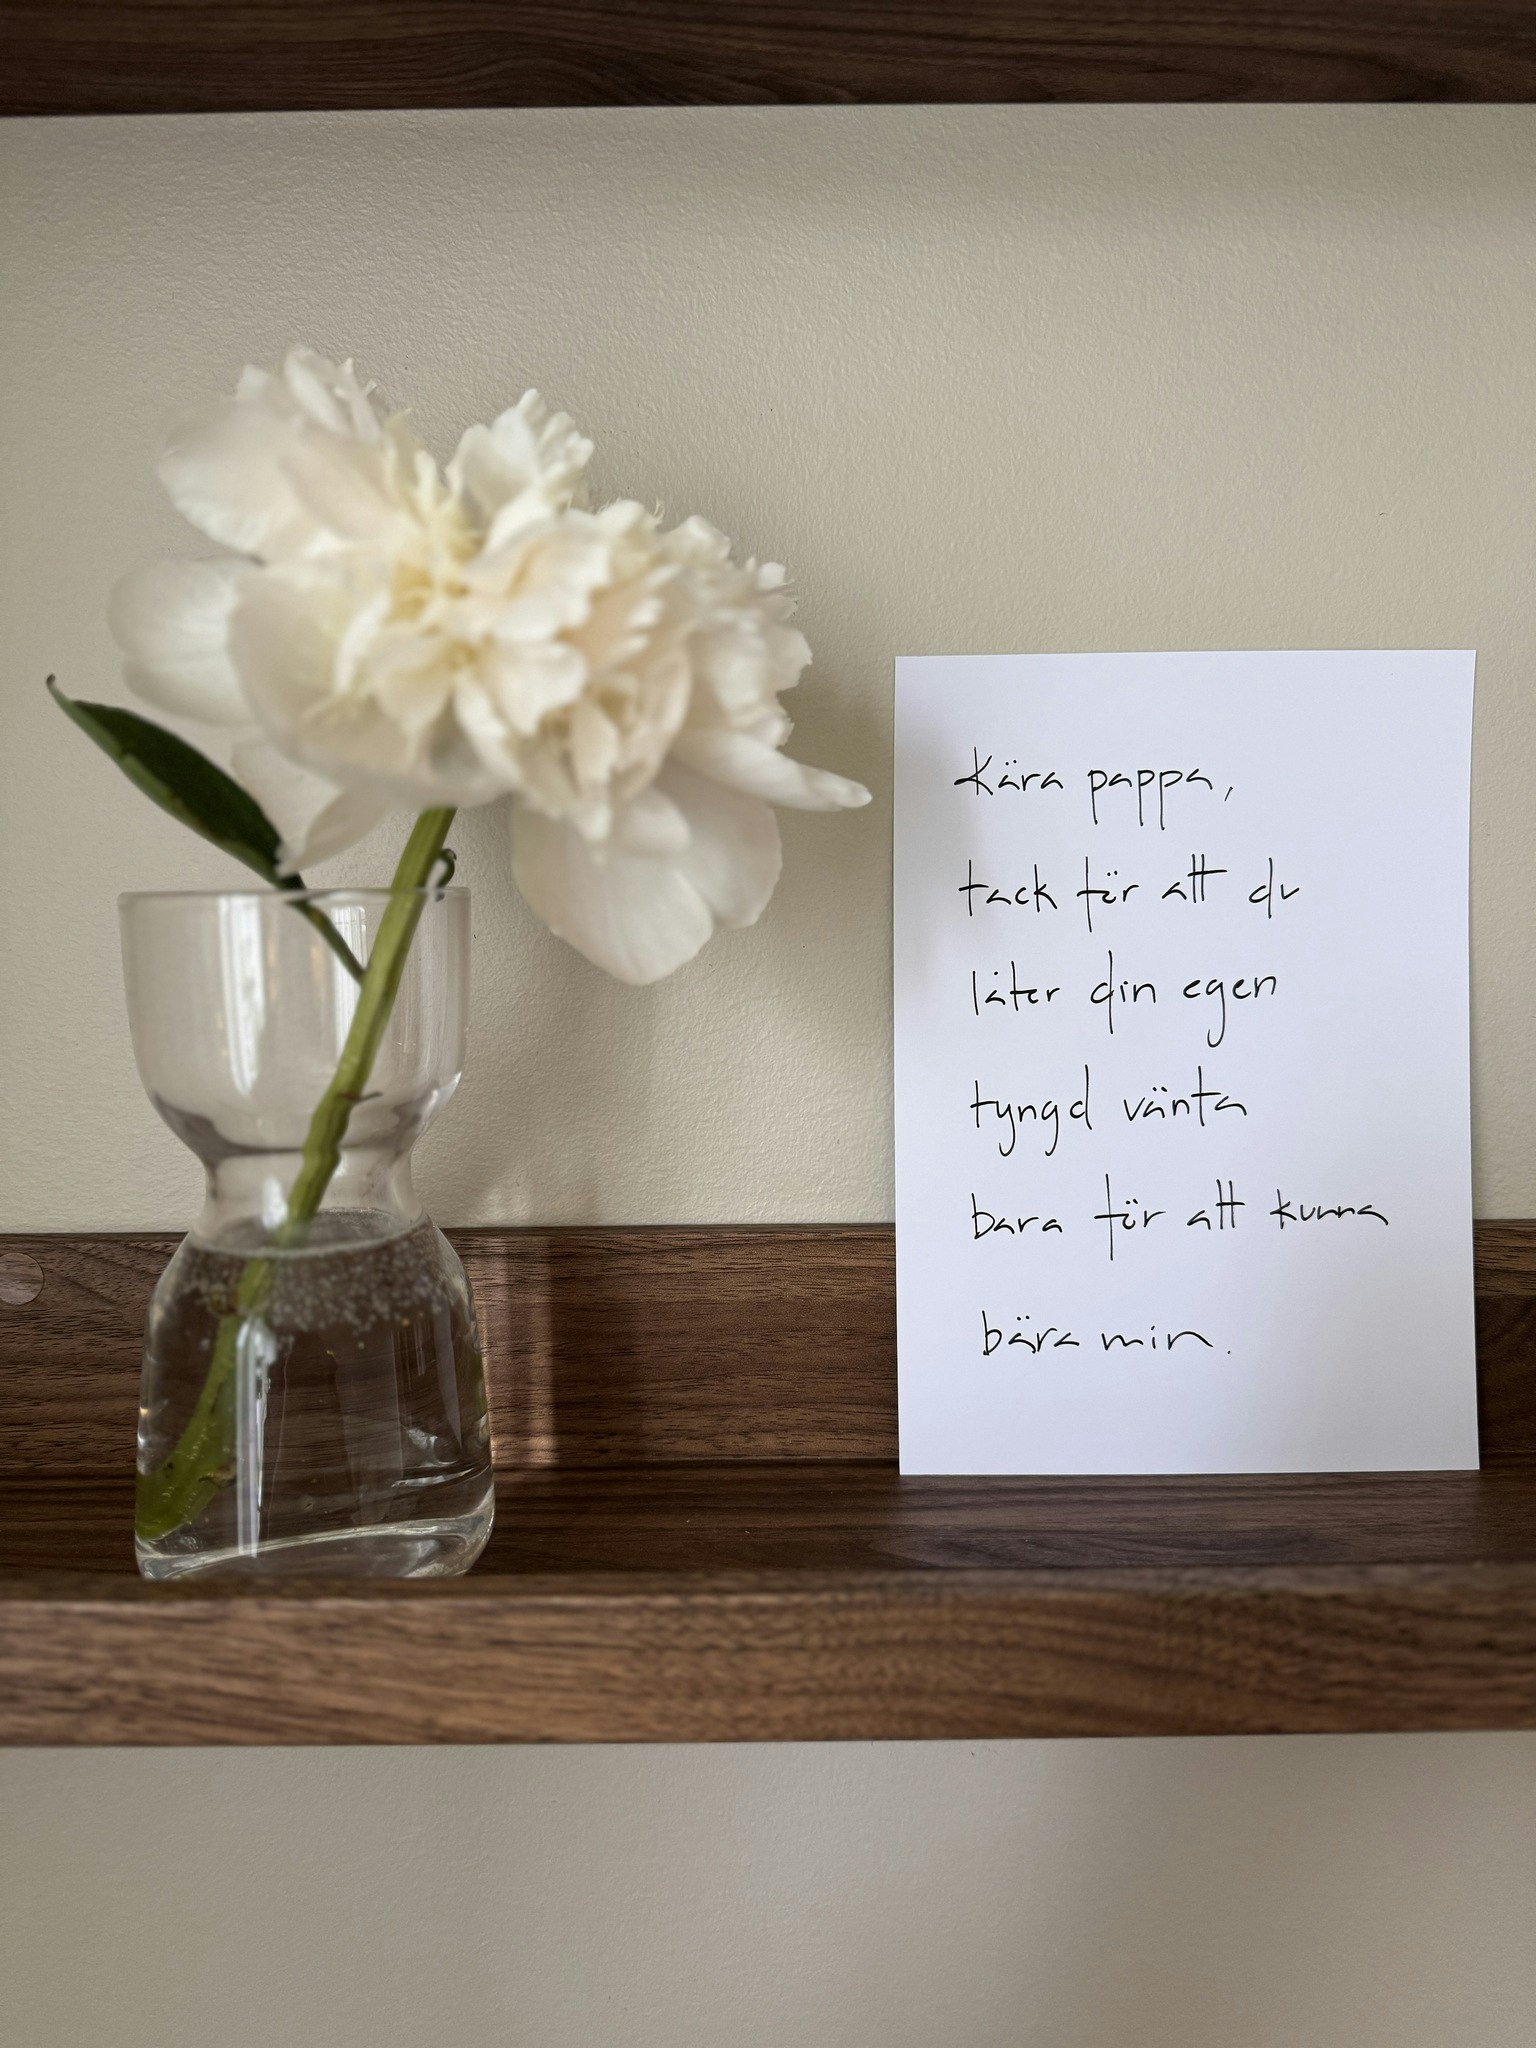 Kära pappa,
tack för att du
låter din egen
tyngd vänta
bara för att kunna
bära min.